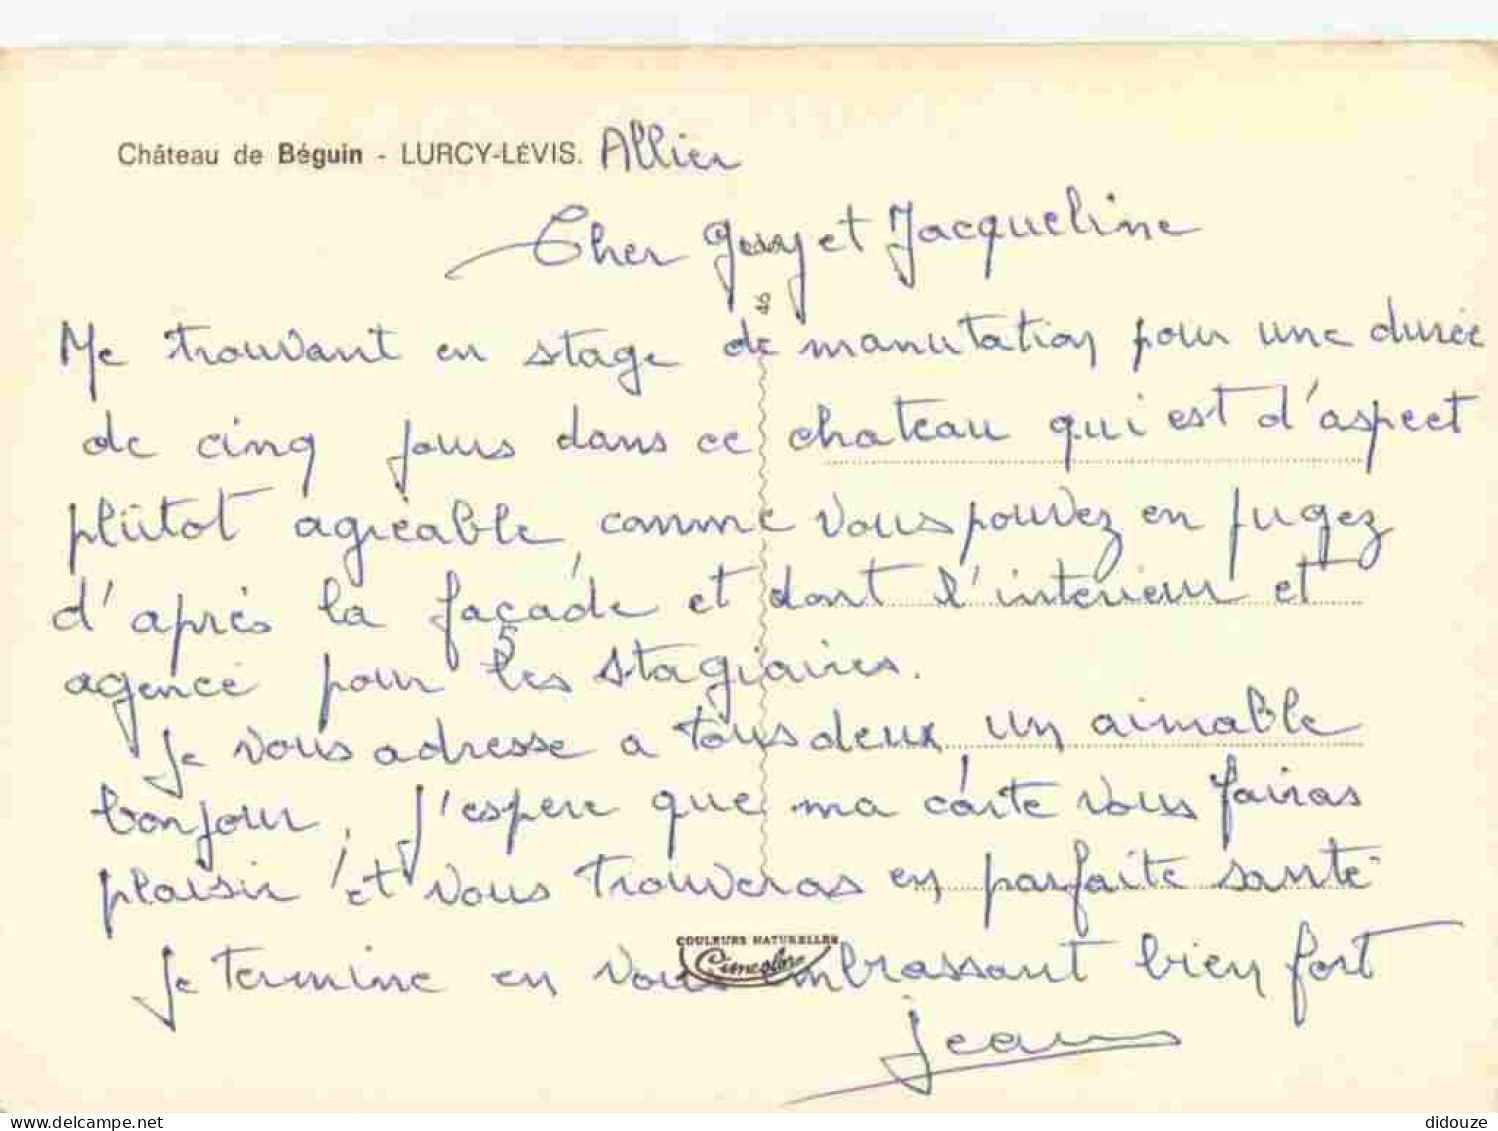 Château de Béguin - LURCY-LÉVIS. Allier
Cher Guy et Jacqueline
Me trouvant en stage de manutation pour une durée
de cinq jours dans ce chateau qui est d'aspect
plûtot agréable, comme vous pouvez en jugez
d'après la façade et dont l'interieur et
agencé pour les stagiaires.
Je vous adresse a tous deux un aimable
bonjour, j'espere que ma carte vous fairas
plaisir, et vous trouveras en parfaite santé
COULEURS NATURELLES
Je termine en vous embrassant bien fort
Jean
delcampe.net
didouze